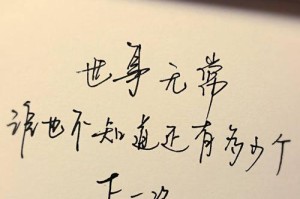 世事无常
谁也不知道还有多少个
下一次